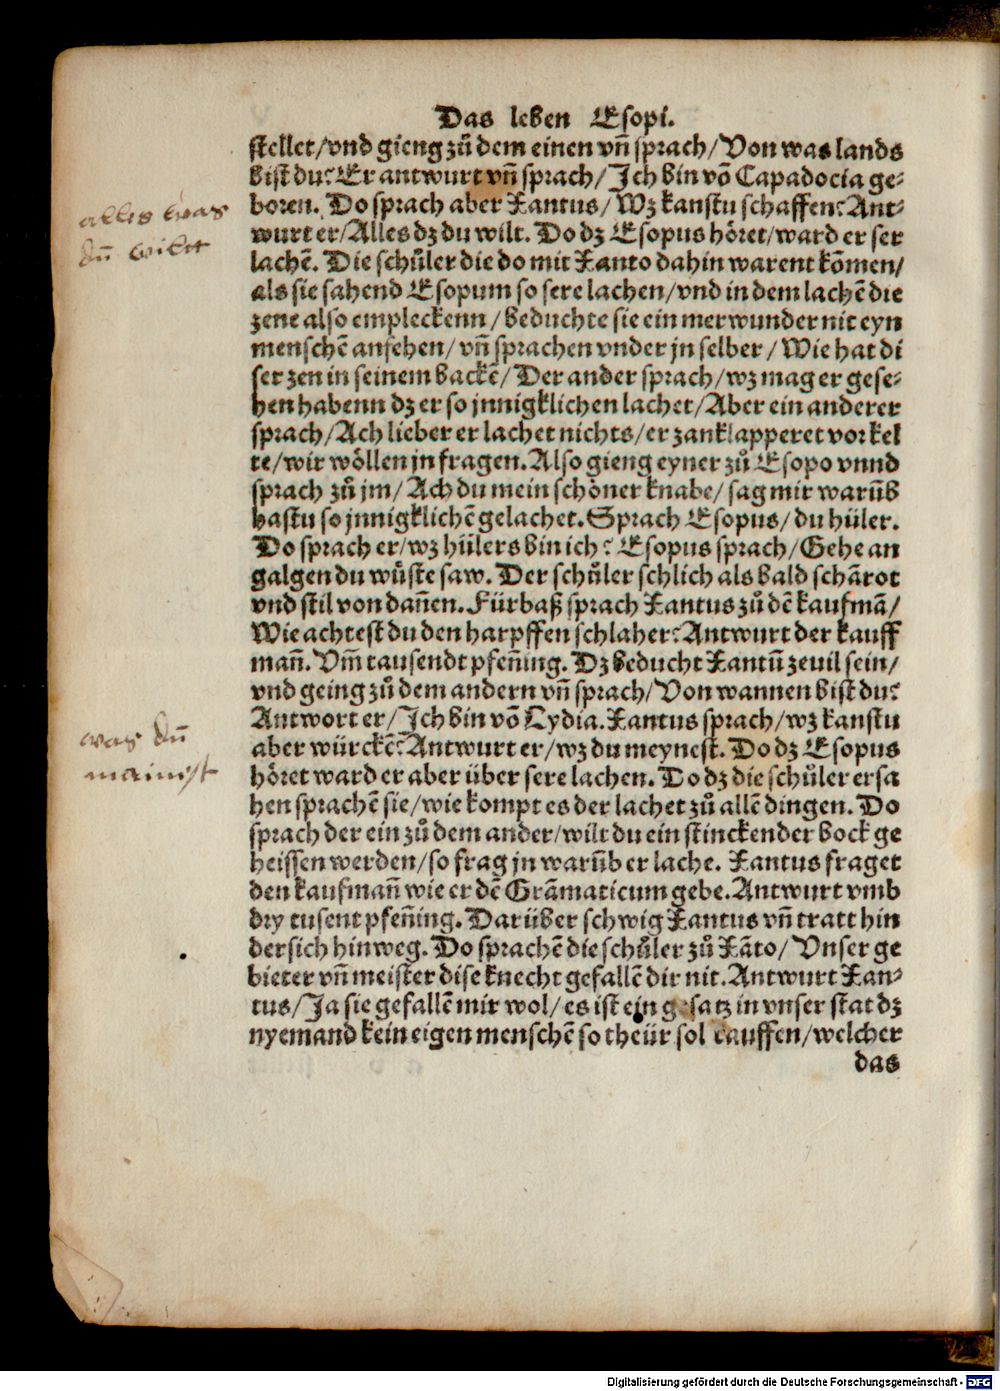 Das leben Esopi.
stellet/vnd gieng zů dem einen vñ sprach/Von was lands
bist du? Er antwurt vñ sprach/Ich bin võ Capadocia ge-
boren. Do sprach aber Xantus/Wz kanstu schaffen? Ant-
wurt er/Alles dz du wilt. Do dz Esopus höret/ward er ser
lachẽ. Die schůler die do mit Xanto dahin warent kõmen/
als sie sahend Esopum so sere lachen/vnd in dem lachẽ die
zene also empleckenn/beduchte sie ein merwunder nit eyn
menschẽ ansehen/vñ sprachen vnder jn selber/Wie hat di
ser zen in seinem backẽ/Der ander sprach/wz mag er gese-
hen habenn dz er so jnnigklichen lachet/Aber ein anderer
sprach/Ach lieber er lachet nichts/er zanklapperet vor kel
te/wir wöllen jn fragen. Also gieng eyner zů Esopo vnnd
sprach zů jm/Ach du mein schöner knabe/sag mir warũb
hastu so jnnigklichẽ gelachet. Sprach Esopus/du hüler.
Do sprach er/wz hülers bin ich? Esopus sprach/Gehe an
galgen du wůste saw. Der schůler schlich als bald schãrot
vnd stil von dañen. Fürbaß sprach Xantus zů dẽ kaufmã/
Wie achtest du den harpffen schlaher? Antwurt der kauff
mañ. Vm̃ tausendt pfeñing. Dz beducht Xantũ zeuil sein/
vnd geing zů dem andern vñ sprach/Von wannen bist du?
Antwort er/Ich bin võ Lydia. Xantus sprach/wz kanstu
aber würckẽ? Antwurt er/wz du meynest. Do dz Esopus
höret ward er aber über sere lachen. Do dz die schůler ersa
hen sprachẽ sie/wie kompt es der lachet zů allẽ dingen. Do
sprach der ein zů dem ander/wilt du ein stinckender bock ge
heissen werden/so frag jn warũb er lache. Xantus fraget
den kaufmañ wie er dẽ Grãmaticum gebe. Antwurt vmb
dry tusent pfeñing. Darüber schwig Xantus vñ tratt hin
dersich hinweg. Do sprachẽ die schůler zů Xãto/Vnser ge
bieter vñ meister dise knecht gefallẽ dir nit. Antwurt Xan-
tus/Ja sie gefallẽ mir wol/es ist ein gesatz in vnser stat dz
nyemand kein eigen menschẽ so theür sol kauffen/welcher
das
alles was
dũ wilt
was dũ
mainist
Digitalisierung gefördert durch die Deutsche Forschungsgemeinschaft - DFG